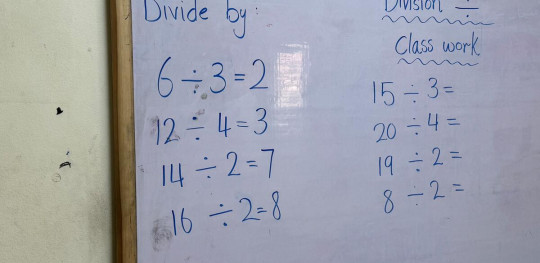 Divide by:
6 ÷ 3 = 2
12 ÷ 4 = 3
14 ÷ 2 = 7
16 ÷ 2 = 8
Division ÷
Class work
15 ÷ 3 =
20 ÷ 4 =
19 ÷ 2 =
8 ÷ 2 =